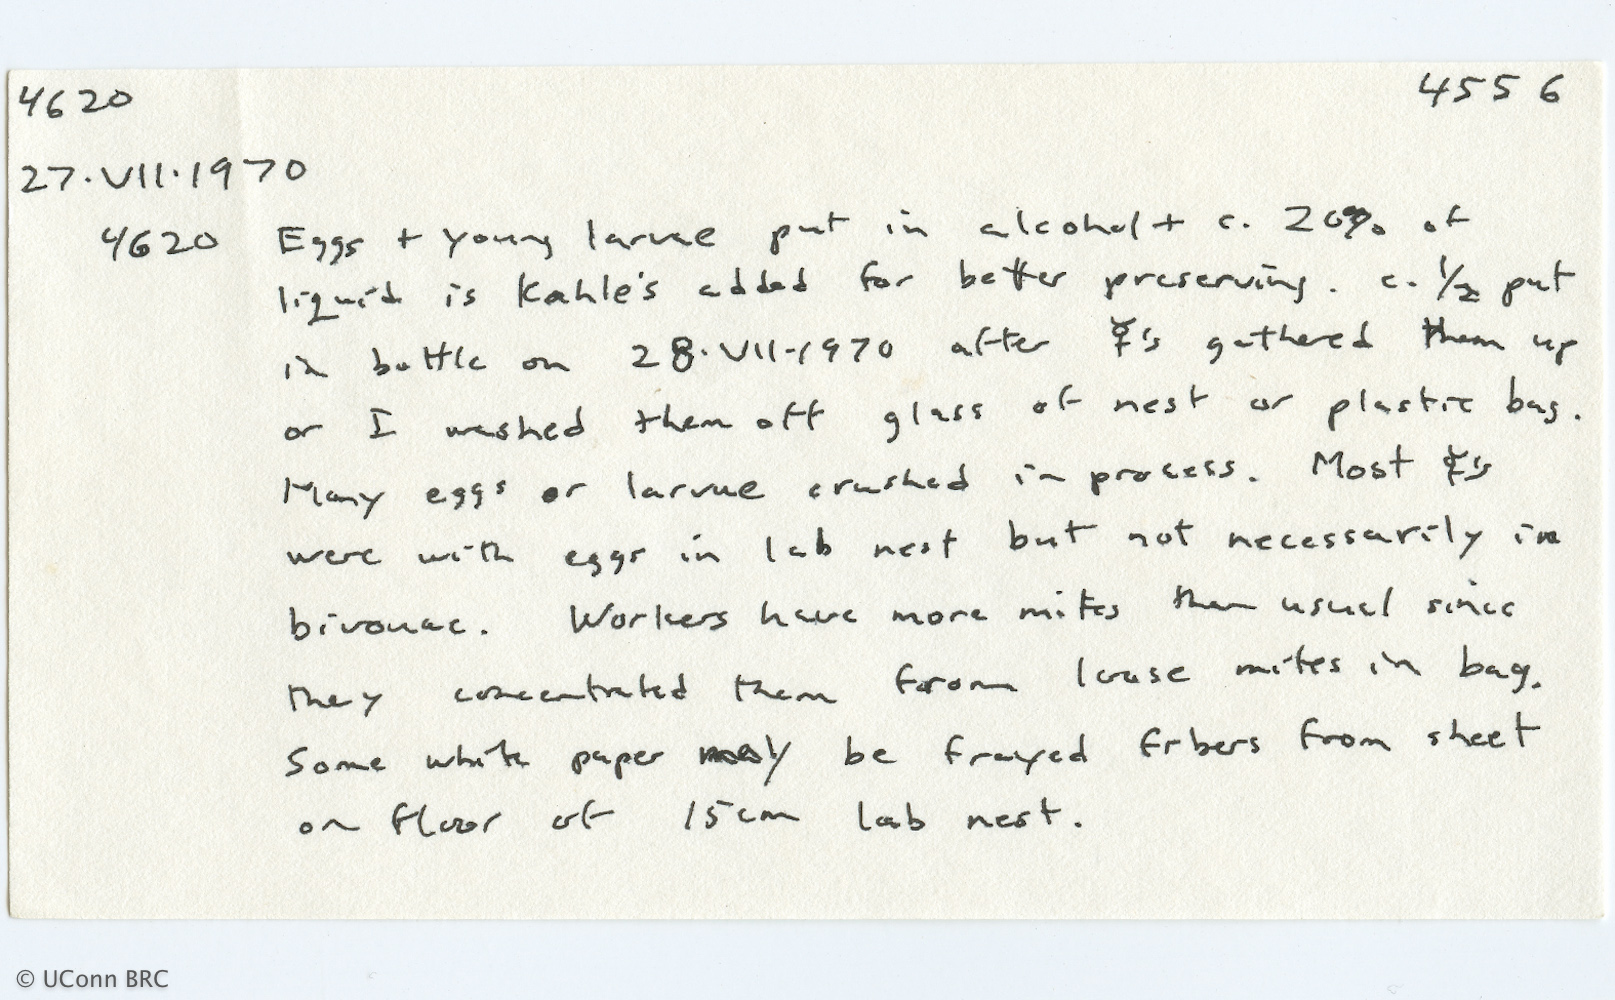 4620 4556
27.VII.1970
4620 Eggs + young larvae put in alcohol + c. 20% of
liquid is Kahle's added for better preserving. c. 1/2 put
in bottle on 28.VII.1970 after ☿'s gathered them up
or I washed them off glass of nest or plastic bag.
Many eggs or larvae crushed in process. Most ☿'s
were with eggs in lab nest but not necessarily in
bivouac. Workers have more mites than usual since
they concentrated them from loose mites in bag.
Some white paper may be frayed fibers from sheet
on floor of 15cm lab nest.
© UConn BRC